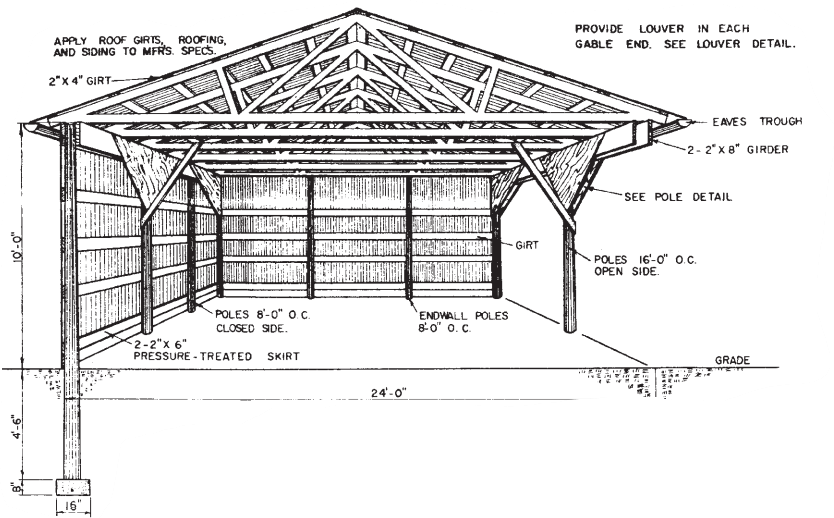 APPLY ROOF GIRTS, ROOFING,
AND SIDING TO MFR'S. SPEC'S.
PROVIDE LOUVER IN EACH
GABLE END. SEE LOUVER DETAIL.
2"X 4" GIRT
EAVES TROUGH
2-2"X 8" GIRDER
SEE POLE DETAIL
10'-0"
GIRT
POLES 16'-0" O.C.
OPEN SIDE.
POLES 8'-0" O.C.
CLOSED SIDE.
ENDWALL POLES
8'-0" O.C.
2-2"X 6"
PRESSURE-TREATED SKIRT
GRADE
24'-0"
4'-6"
8"
16"